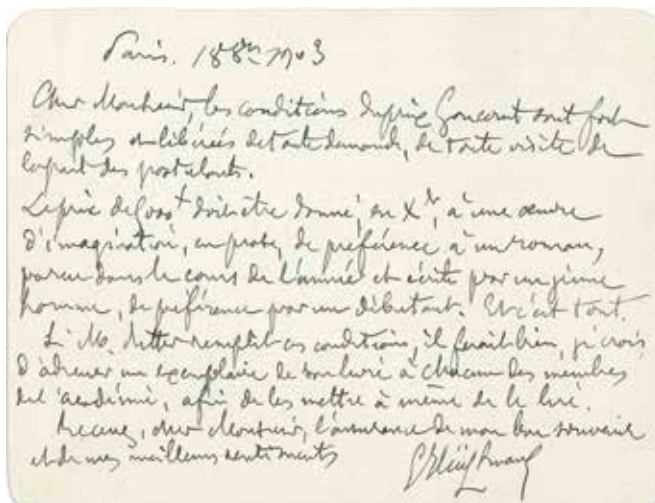 Paris. 18 8bre 1903
Cher Monsieur, les conditions du prix Goncourt sont fort
simples et libérées de toute demande, de toute visite de
la part des postulants.
Le prix de 5000 f doit être donné, en Xbre, à une œuvre
d'imagination, en prose, de préférence à un roman,
paru dans le cours de l'année et écrite par un jeune
homme, de préférence par un débutant. Et c'est tout.
Si M. remplit ces conditions, il ferait bien, je crois
d'adresser un exemplaire de son livre à chacun des membres
de l'académie, afin de les mettre à même de le lire.
Recevez, cher Monsieur, l'assurance de mon bon souvenir
et de mes meilleurs sentiments